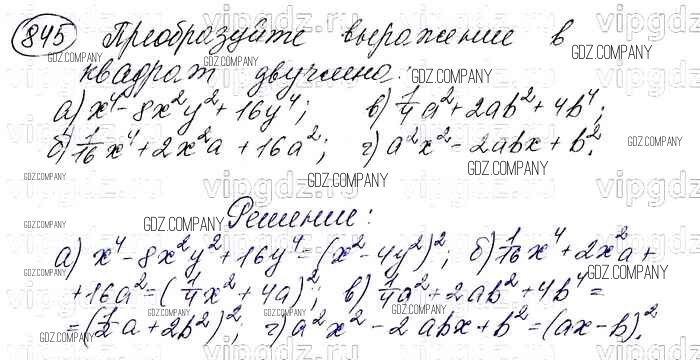 845 Преобразуйте выражение в
квадрат двучлена:
а) x⁴ - 8x²y² + 16y⁴; в) 1/4 a² + 2ab² + 4b⁴;
б) 1/16 x⁴ + 2x²a + 16a²; г) a²x² - 2abx + b².
Решение:
а) x⁴ - 8x²y² + 16y⁴ = (x² - 4y²)²; б) 1/16 x⁴ + 2x²a +
+ 16a² = (1/4 x² + 4a)²; в) 1/4 a² + 2ab² + 4b⁴ =
= (1/2 a + 2b²)²; г) a²x² - 2abx + b² = (ax - b)².